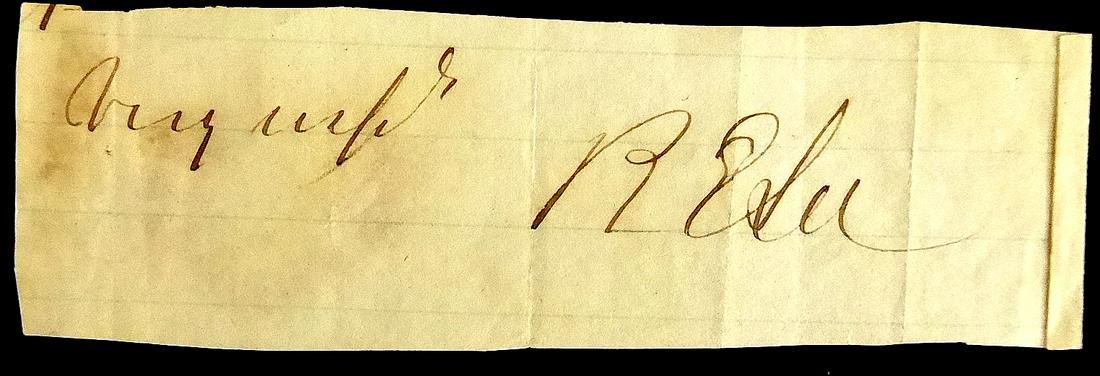 Very respy
R E Lee